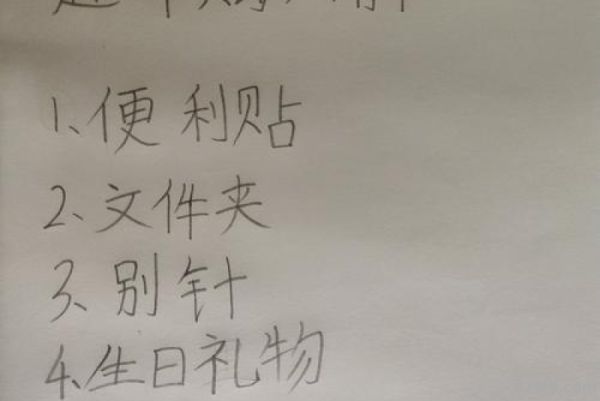 1、便利贴
2、文件夹
3、别针
4、生日礼物